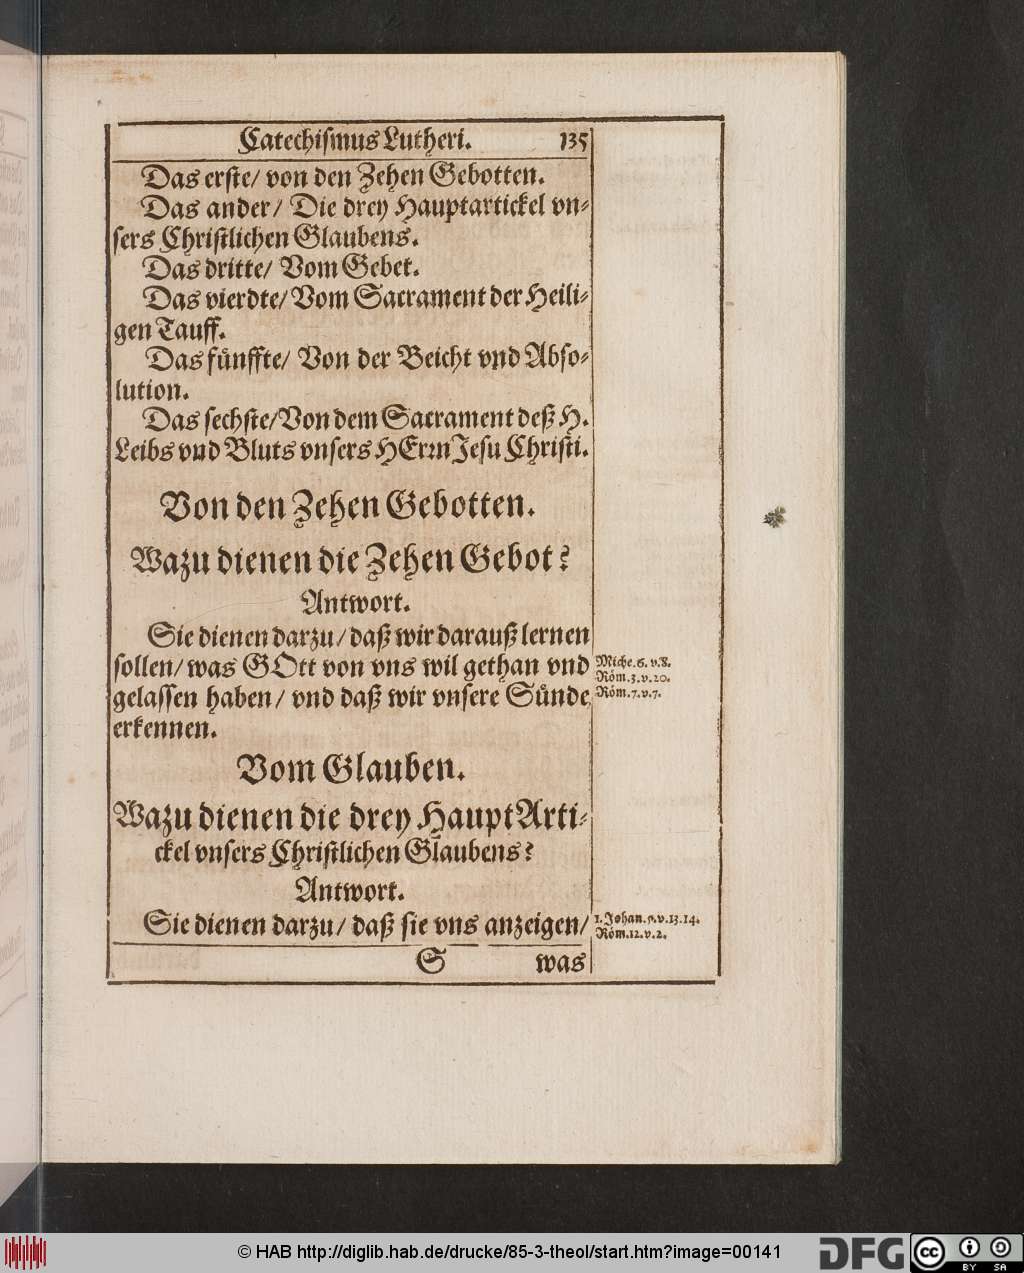 Catechismus Lutheri. 135
Das erste/ von den Zehen Gebotten.
Das ander/ Die drey Hauptartickel vn⸗
sers Christlichen Glaubens.
Das dritte/ Vom Gebet.
Das vierdte/ Vom Sacrament der Heili⸗
gen Tauff.
Das fůnffte/ Von der Beicht vnd Abso⸗
lution.
Das sechste/ Von dem Sacrament deß H.
Leibs vnd Bluts vnsers HErrn Jesu Christi.
Von den Zehen Gebotten.
Wazu dienen die Zehen Gebot?
Antwort.
Sie dienen darzu/ daß wir darauß lernen
sollen/ was GOtt von vns wil gethan vnd
gelassen haben/ vnd daß wir vnsere Sůnde
erkennen.
Miche. 6. v. 8.
Röm. 3. v. 20.
Röm. 7. v. 7.
Vom Glauben.
Wazu dienen die drey HauptArti⸗
ckel vnsers Christlichen Glaubens?
Antwort.
Sie dienen darzu/ daß sie vns anzeigen/
1. Johan. 5. v. 13. 14.
Röm. 12. v. 2.
S was
© HAB http://diglib.hab.de/drucke/85-3-theol/start.htm?image=00141
DFG
cc BY SA